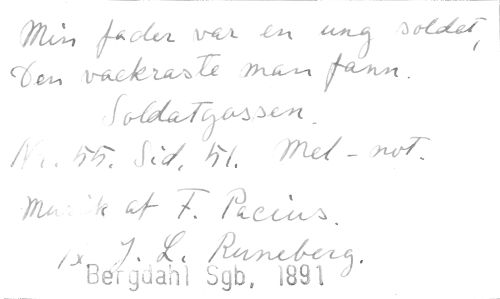 Min fader var en ung soldat,
Den vackraste man fann.
Soldatgossen.
Nr. 55. Sid. 51. Mel-not.
Musik af F. Pacius.
J. L. Runeberg.
Bergdahl Sgb, 1891